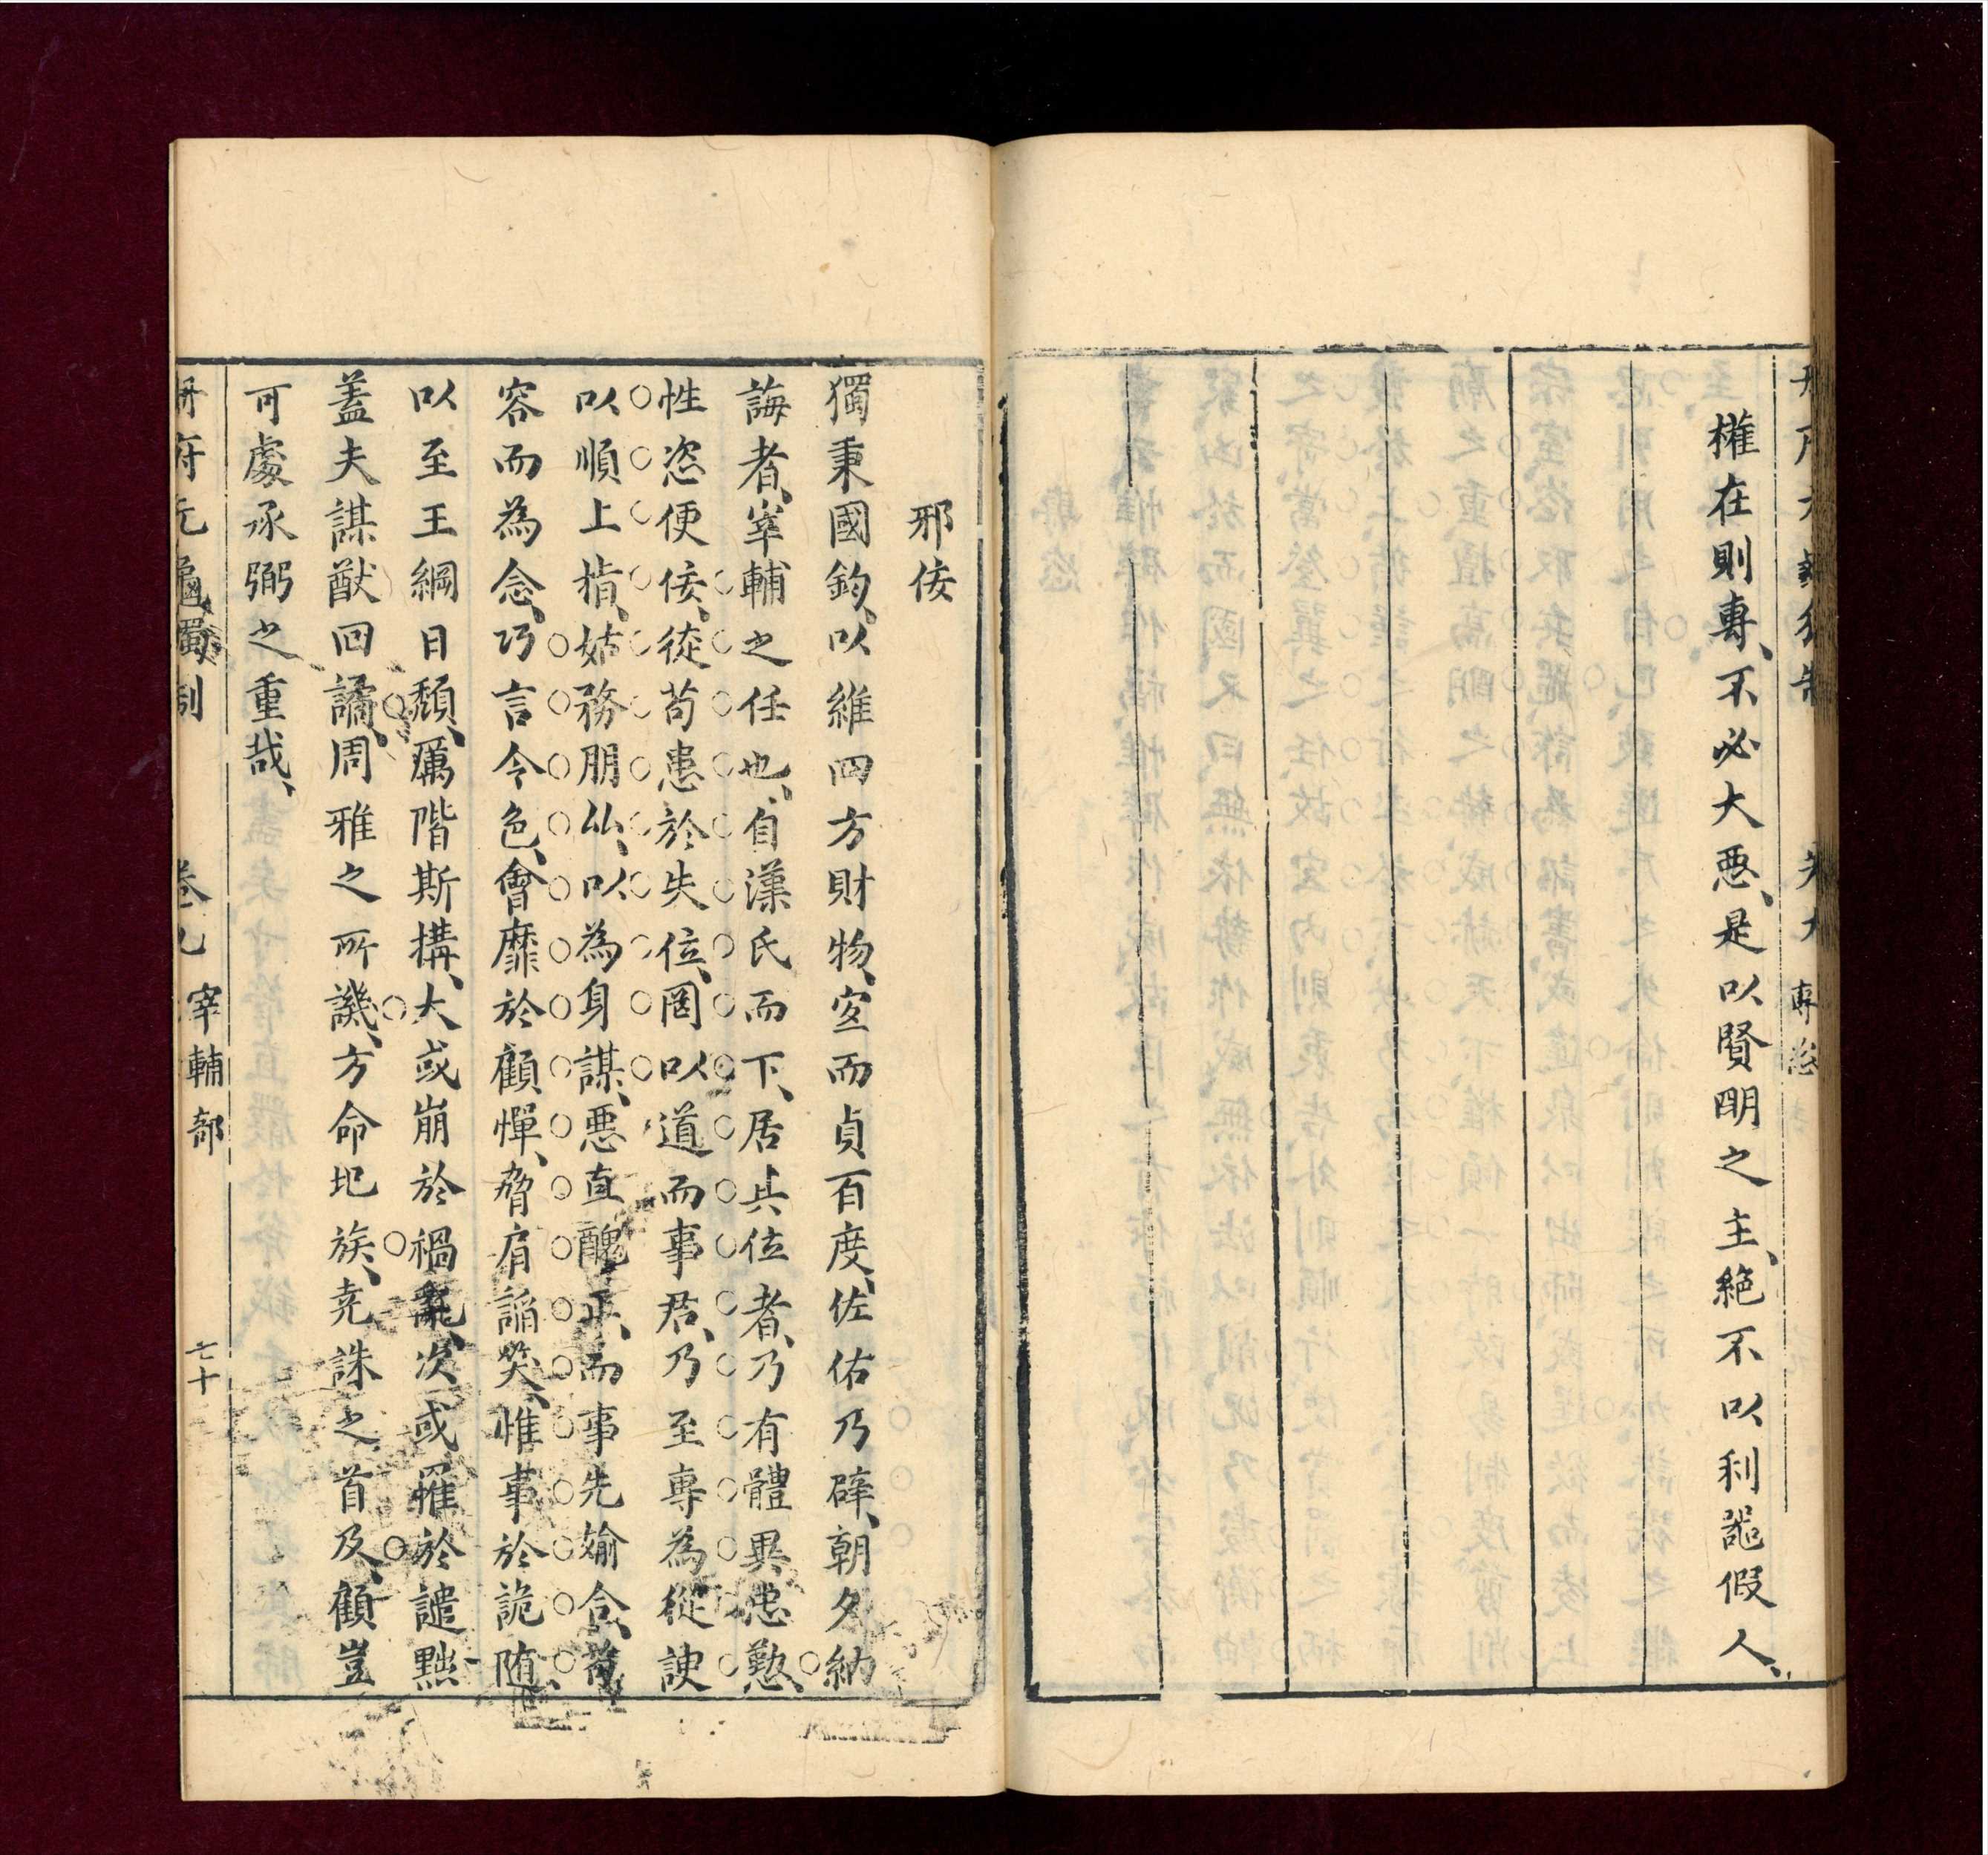 權在則專、不必大惡、是以賢明之主、絕不以利器假人、
專恣
邪佞
獨秉國鈞、以維四方財物、寔而貞百度、佐佑乃辟、朝夕納
誨者、宰輔之任也、自漢氏而下、居其位者、乃有體異忠懃、
性恣便佞、從苟患於失位、罔以道而事君、乃至專為從諛
以順上指、姑務朋仫、以為身謀、惡直醜正、而事先婾合、苟
容而為念、巧言令色、會靡於顧憚、脅肩謟笑、惟事於詭隨、
以至王綱日頹、厲階斯搆、大或崩於禍亂、次或罹於譴黜
蓋夫謀猷回譎、周雅之所譏、方命圯族、堯誅之首及、顧豈
可處承弼之重哉、
冊府元龜獨制 卷九 宰輔部 七十